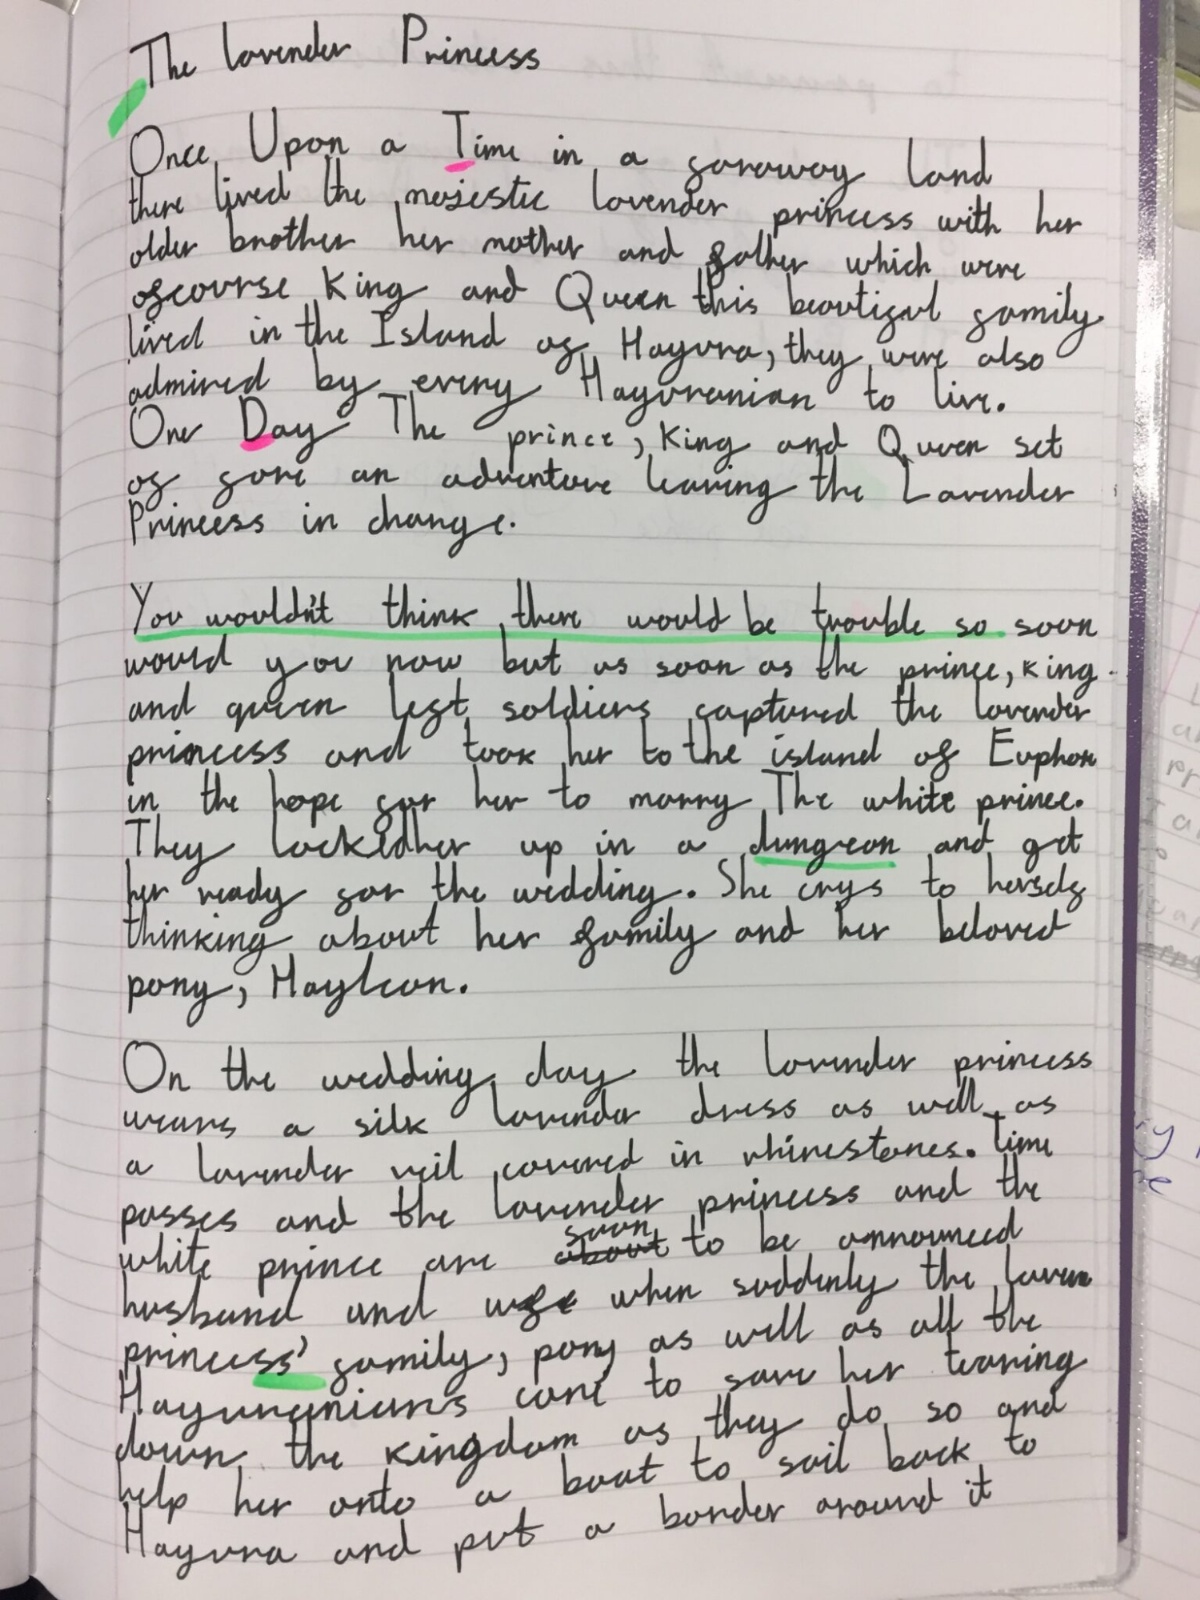 The lavender Princess
Once Upon a Time in a faraway land
there lived the majestic lavender princess with her
older brother her mother and father which were
ofcourse King and Queen this beautiful family
lived in the Island of Hayura, they were also
admired by every Hayuranian to live.
One Day The prince, King and Queen set
of fore an adventure leaving the Lavender
Princess in change.
You wouldn't think there would be trouble so soon
would you now but as soon as the prince, king
and queen left soldiers captured the lavender
princess and took her to the island of Euphon
in the hope for her to marry The white prince.
They locked her up in a dungeon and get
her ready for the wedding. She crys to herself
thinking about her family and her beloved
pony, Hayleon.
On the wedding day the lavender princess
wears a silk lavender dress as well as
a lavender veil covered in rhinestones. Time
passes and the lavender princess and the
white prince are about soon to be announced
husband and wife when suddenly the laven
princess' family, pony as well as all the
Hayuranians came to save her tearing
down the kingdom as they do so and
help her onto a boat to sail back to
Hayura and put a border around it